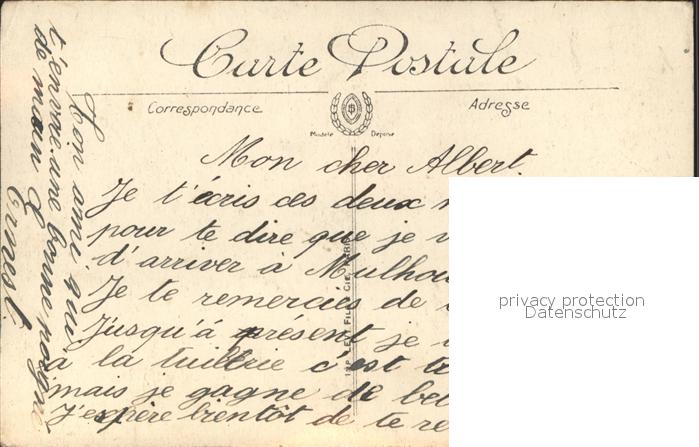 Carte Postale
Correspondance
Adresse
Modèle Déposé
Mon cher Albert.
Je t'écris ces deux
pour te dire que je
d'arriver à
Je te remercies de
Jusqu'à présent je
à la tuillerie c'est
mais je gagne de
J'espère bientôt de te
Ton ami qui
t'envoie une bonne poigné
de main
Ernest.
privacy protection
Datenschutz